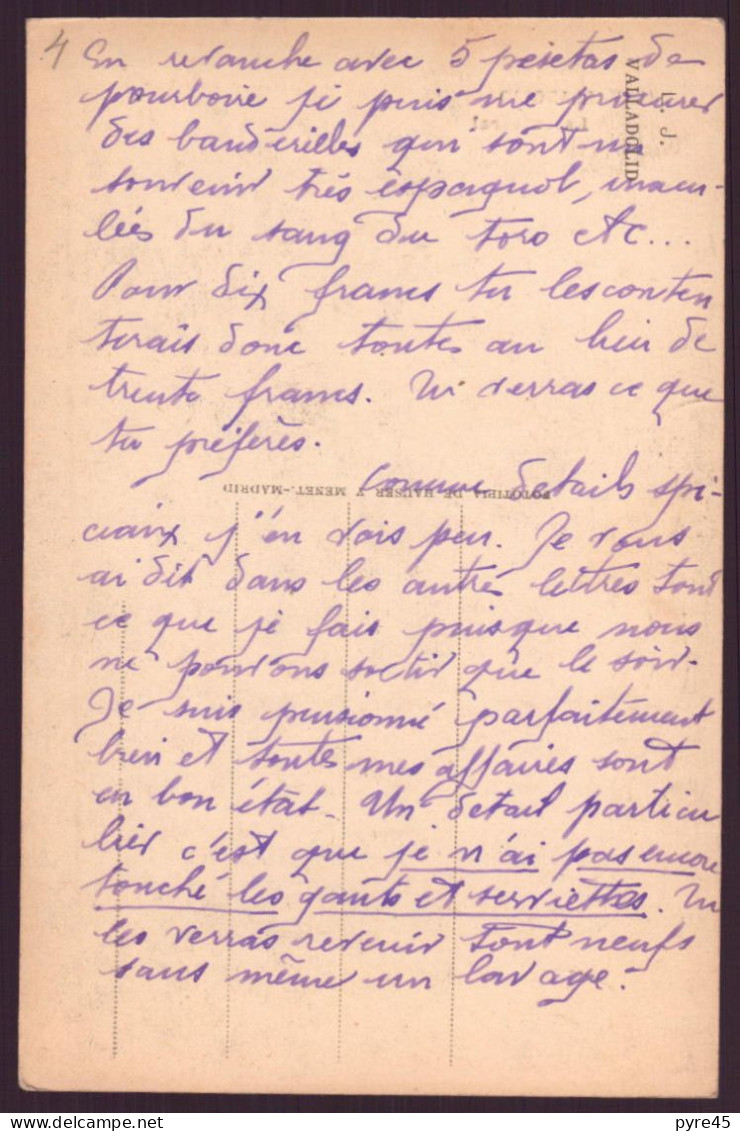 4
En revanche avec 5 pesetas de
pourboire je puis me procurer
des banderilles qui sont un
souvenir très espagnol, macu-
lées du sang du toro etc...
Pour dix francs tu les conten
terais donc toutes au lieu de
trente francs. Tu verras ce que
tu préfères.
Comme details spé-
ciaux j'en vois peu. Je vous
ai dit dans les autres lettres tout
ce que je fais puisque nous
ne pouvons sortir que le soir.
Je suis pensionné parfaitement
bien et toutes mes affaires sont
en bon état. Un detail particu
lier c'est que je n'ai pas encore
touché les gants et serviettes. Tu
les verras revenir tout neufs
sans même un lavage.
L. J.
VALLADOLID
FOTOTIPIA DE HAUSER Y MENET.-MADRID
pyre45